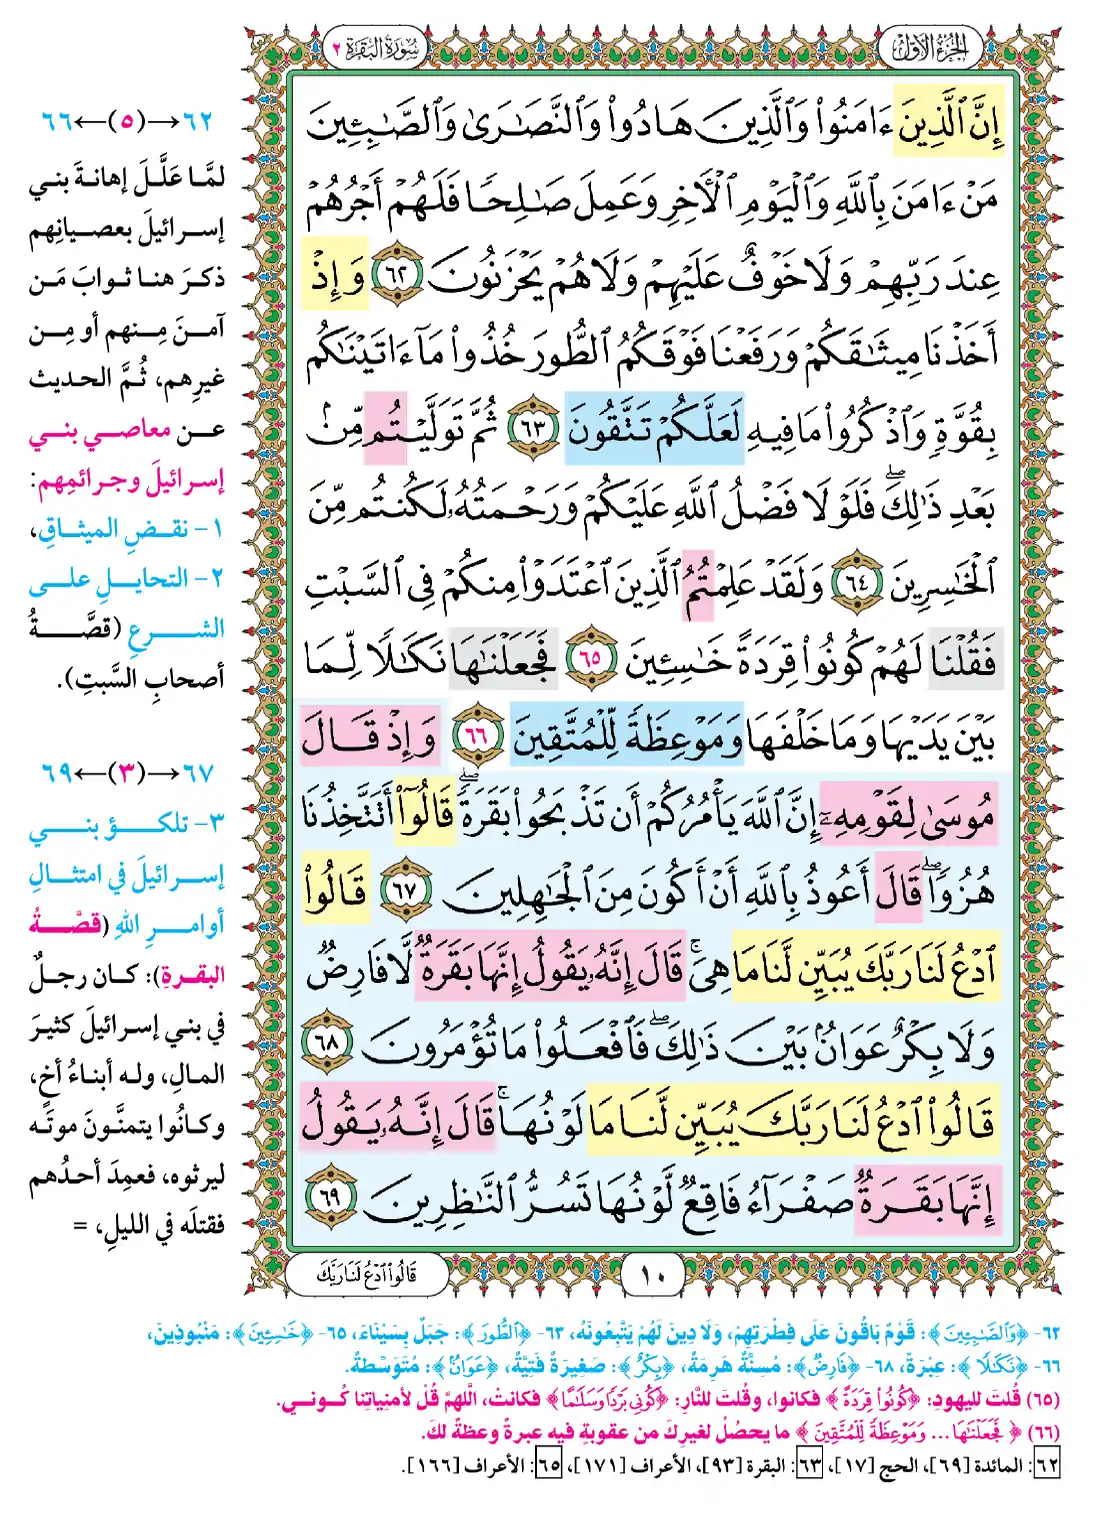 الجزء الأول
سورة البقرة ٢
إِنَّ ٱلَّذِينَ ءَامَنُوا۟ وَٱلَّذِينَ هَادُوا۟ وَٱلنَّصَـٰرَىٰ وَٱلصَّـٰبِـِٔينَ
مَنْ ءَامَنَ بِٱللَّهِ وَٱلْيَوْمِ ٱلْـَٔاخِرِ وَعَمِلَ صَـٰلِحًا فَلَهُمْ أَجْرُهُمْ
عِندَ رَبِّهِمْ وَلَا خَوْفٌ عَلَيْهِمْ وَلَا هُمْ يَحْزَنُونَ ٦٢ وَإِذْ
أَخَذْنَا مِيثَـٰقَكُمْ وَرَفَعْنَا فَوْقَكُمُ ٱلطُّورَ خُذُوا۟ مَآ ءَاتَيْنَـٰكُم
بِقُوَّةٍ وَٱذْكُرُوا۟ مَا فِيهِ لَعَلَّكُمْ تَتَّقُونَ ٦٣ ثُمَّ تَوَلَّيْتُم مِّنۢ
بَعْدِ ذَٰلِكَ ۖ فَلَوْلَا فَضْلُ ٱللَّهِ عَلَيْكُمْ وَرَحْمَتُهُۥ لَكُنتُم مِّنَ
ٱلْخَـٰسِرِينَ ٦٤ وَلَقَدْ عَلِمْتُمُ ٱلَّذِينَ ٱعْتَدَوْا۟ مِنكُمْ فِى ٱلسَّبْتِ
فَقُلْنَا لَهُمْ كُونُوا۟ قِرَدَةً خَـٰسِـِٔينَ ٦٥ فَجَعَلْنَـٰهَا نَكَـٰلًا لِّمَا
بَيْنَ يَدَيْهَا وَمَا خَلْفَهَا وَمَوْعِظَةً لِّلْمُتَّقِينَ ٦٦ وَإِذْ قَالَ
مُوسَىٰ لِقَوْمِهِۦٓ إِنَّ ٱللَّهَ يَأْمُرُكُمْ أَن تَذْبَحُوا۟ بَقَرَةً ۖ قَالُوٓا۟ أَتَتَّخِذُنَا
هُزُوًا ۖ قَالَ أَعُوذُ بِٱللَّهِ أَنْ أَكُونَ مِنَ ٱلْجَـٰهِلِينَ ٦٧ قَالُوا۟
ٱدْعُ لَنَا رَبَّكَ يُبَيِّن لَّنَا مَا هِىَ ۚ قَالَ إِنَّهُۥ يَقُولُ إِنَّهَا بَقَرَةٌ لَّا فَارِضٌ
وَلَا بِكْرٌ عَوَانٌۢ بَيْنَ ذَٰلِكَ ۖ فَٱفْعَلُوا۟ مَا تُؤْمَرُونَ ٦٨
قَالُوا۟ ٱدْعُ لَنَا رَبَّكَ يُبَيِّن لَّنَا مَا لَوْنُهَا ۚ قَالَ إِنَّهُۥ يَقُولُ
إِنَّهَا بَقَرَةٌ صَفْرَآءُ فَاقِعٌ لَّوْنُهَا تَسُرُّ ٱلنَّـٰظِرِينَ ٦٩
١٠
قَالُوا۟ ٱدْعُ لَنَا رَبَّكَ
٦٢→(٥)←٦٦
لمَّا عَلَّلَ إهانةَ بني
إسرائيلَ بعصيانِهم
ذكرَ هنا ثوابَ مَن
آمنَ مِنهم أو مِن
غيرِهم، ثُمَّ الحديث
عن معاصي بني
إسرائيلَ وجرائمِهم:
١- نقضِ الميثاقِ،
٢- التحايلِ على
الشرعِ (قصَّةُ
أصحابِ السَّبتِ).
٦٧→(٣)←٦٩
٣- تلكؤ بني
إسرائيلَ في امتثالِ
أوامرِ اللهِ (قصَّةُ
البقرةِ): كان رجلٌ
في بني إسرائيلَ كثيرَ
المالِ، وله أبناءُ أخٍ،
وكانُوا يتمنَّونَ موتَه
ليرثوه، فعمِدَ أحدُهم
فقتلَه في الليلِ، =
٦٢- ﴿وَٱلصَّـٰبِـِٔينَ﴾: قَوْمٌ بَاقُونَ عَلَى فِطْرَتِهِمْ، وَلَا دِينَ لَهُمْ يَتَّبِعُونَهُ، ٦٣- ﴿ٱلطُّورَ﴾: جَبَلٌ بِسَيْنَاءَ، ٦٥- ﴿خَـٰسِـِٔينَ﴾: مَنْبُوذِينَ،
٦٦- ﴿نَكَـٰلًا﴾: عِبْرَةً، ٦٨- ﴿فَارِضٌ﴾: مُسِنَّةٌ هَرِمَةٌ، ﴿بِكْرٌ﴾: صَغِيرَةٌ فَتِيَّةٌ، ﴿عَوَانٌۢ﴾: مُتَوَسِّطَةٌ.
(٦٥) قُلتَ لليهودِ: ﴿كُونُوا۟ قِرَدَةً﴾ فكانوا، وقُلتَ للنَّارِ: ﴿كُونِى بَرْدًا وَسَلَـٰمًا﴾ فكانتْ، اللَّهمَّ قُلْ لأمنِياتِنا كُوني.
(٦٦) ﴿فَجَعَلْنَـٰهَا ... وَمَوْعِظَةً لِّلْمُتَّقِينَ﴾ ما يحصُلُ لغيرِكَ من عقوبةٍ فيه عبرةٌ وعظةٌ لكَ.
٦٢: المائدة [٦٩]، الحج [١٧]، ٦٣: البقرة [٩٣]، الأعراف [١٧١]، ٦٥: الأعراف [١٦٦].